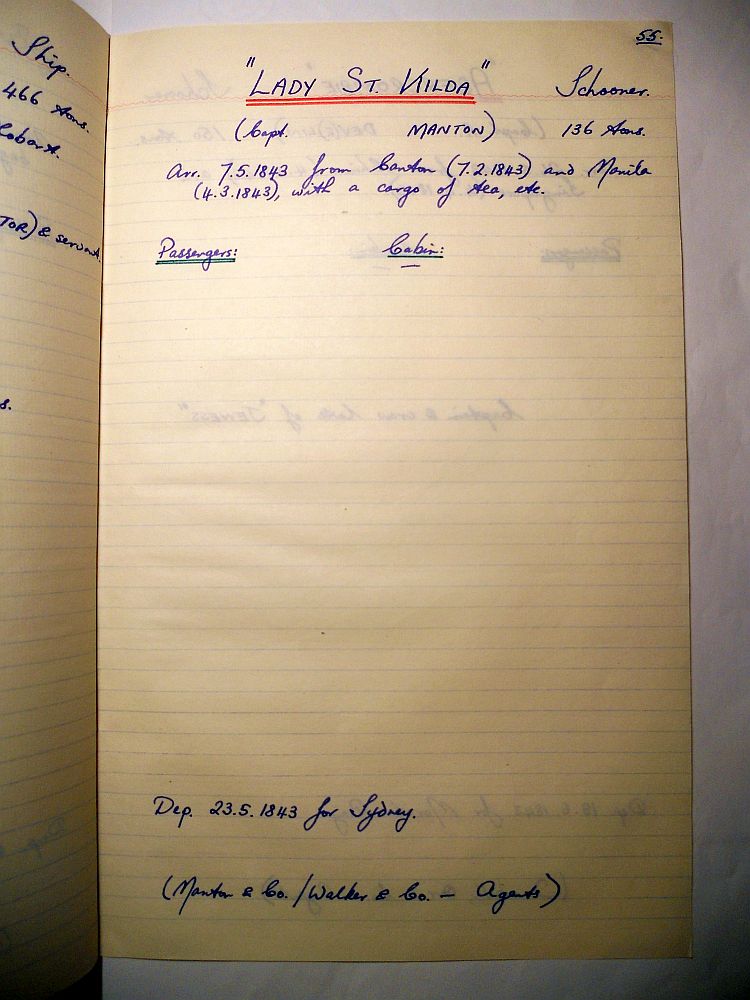 Ship.
466 tons.
Hobart.
TOR) & servant.
s.
55.
"LADY ST. KILDA" Schooner.
(Capt. MANTON) 136 tons.
Arr. 7.5.1843 from Canton (7.2.1843) and Manila
(4.3.1843), with a cargo of tea, etc.
Passengers: Cabin:
—
Dep. 23.5.1843 for Sydney.
(Manton & Co. / Walker & Co. — Agents)